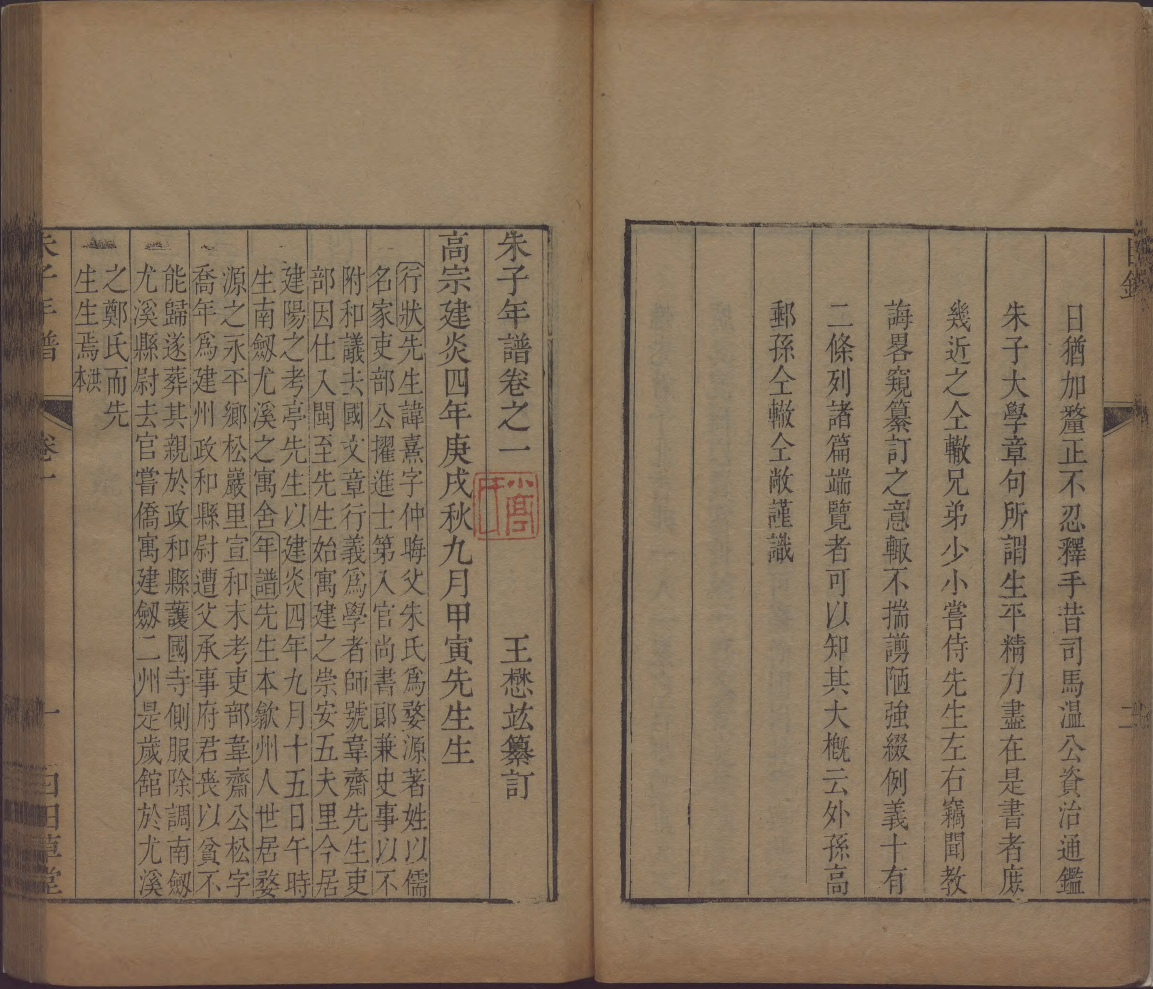 日猶加釐正不忍釋手昔司馬溫公資治通鑑
朱子大學章句所謂生平精力盡在是書者庶
幾近之仝轍兄弟少小嘗侍先生左右竊聞教
誨畧窺纂訂之意輙不揣謭陋強綴例義十有
二條列諸篇端覽者可以知其大槪云外孫高
郵孫仝轍仝敞謹識
朱子年譜卷之一
王懋竑纂訂
高宗建炎四年庚戌秋九月甲寅先生生
行狀先生諱熹字仲晦父朱氏爲婺源著姓以儒
名家吏部公擢進士第入官尚書郎兼史事以不
附和議去國文章行義爲學者師號韋齋先生吏
部因仕入閩至先生始寓建之崇安五夫里今居
建陽之考亭先生以建炎四年九月十五日午時
生南劔尤溪之寓舍年譜先生本歙州人世居婺
源之永平鄉松巖里宣和末考吏部韋齋公松字
喬年爲建州政和縣尉遭父承事府君喪以貧不
能歸遂葬其親於政和縣護國寺側服除調南劔
尤溪縣尉去官嘗僑寓建劔二州是歲舘於尤溪
之鄭氏而先
生生焉洪本
朱子年譜
卷一
一
白田草堂